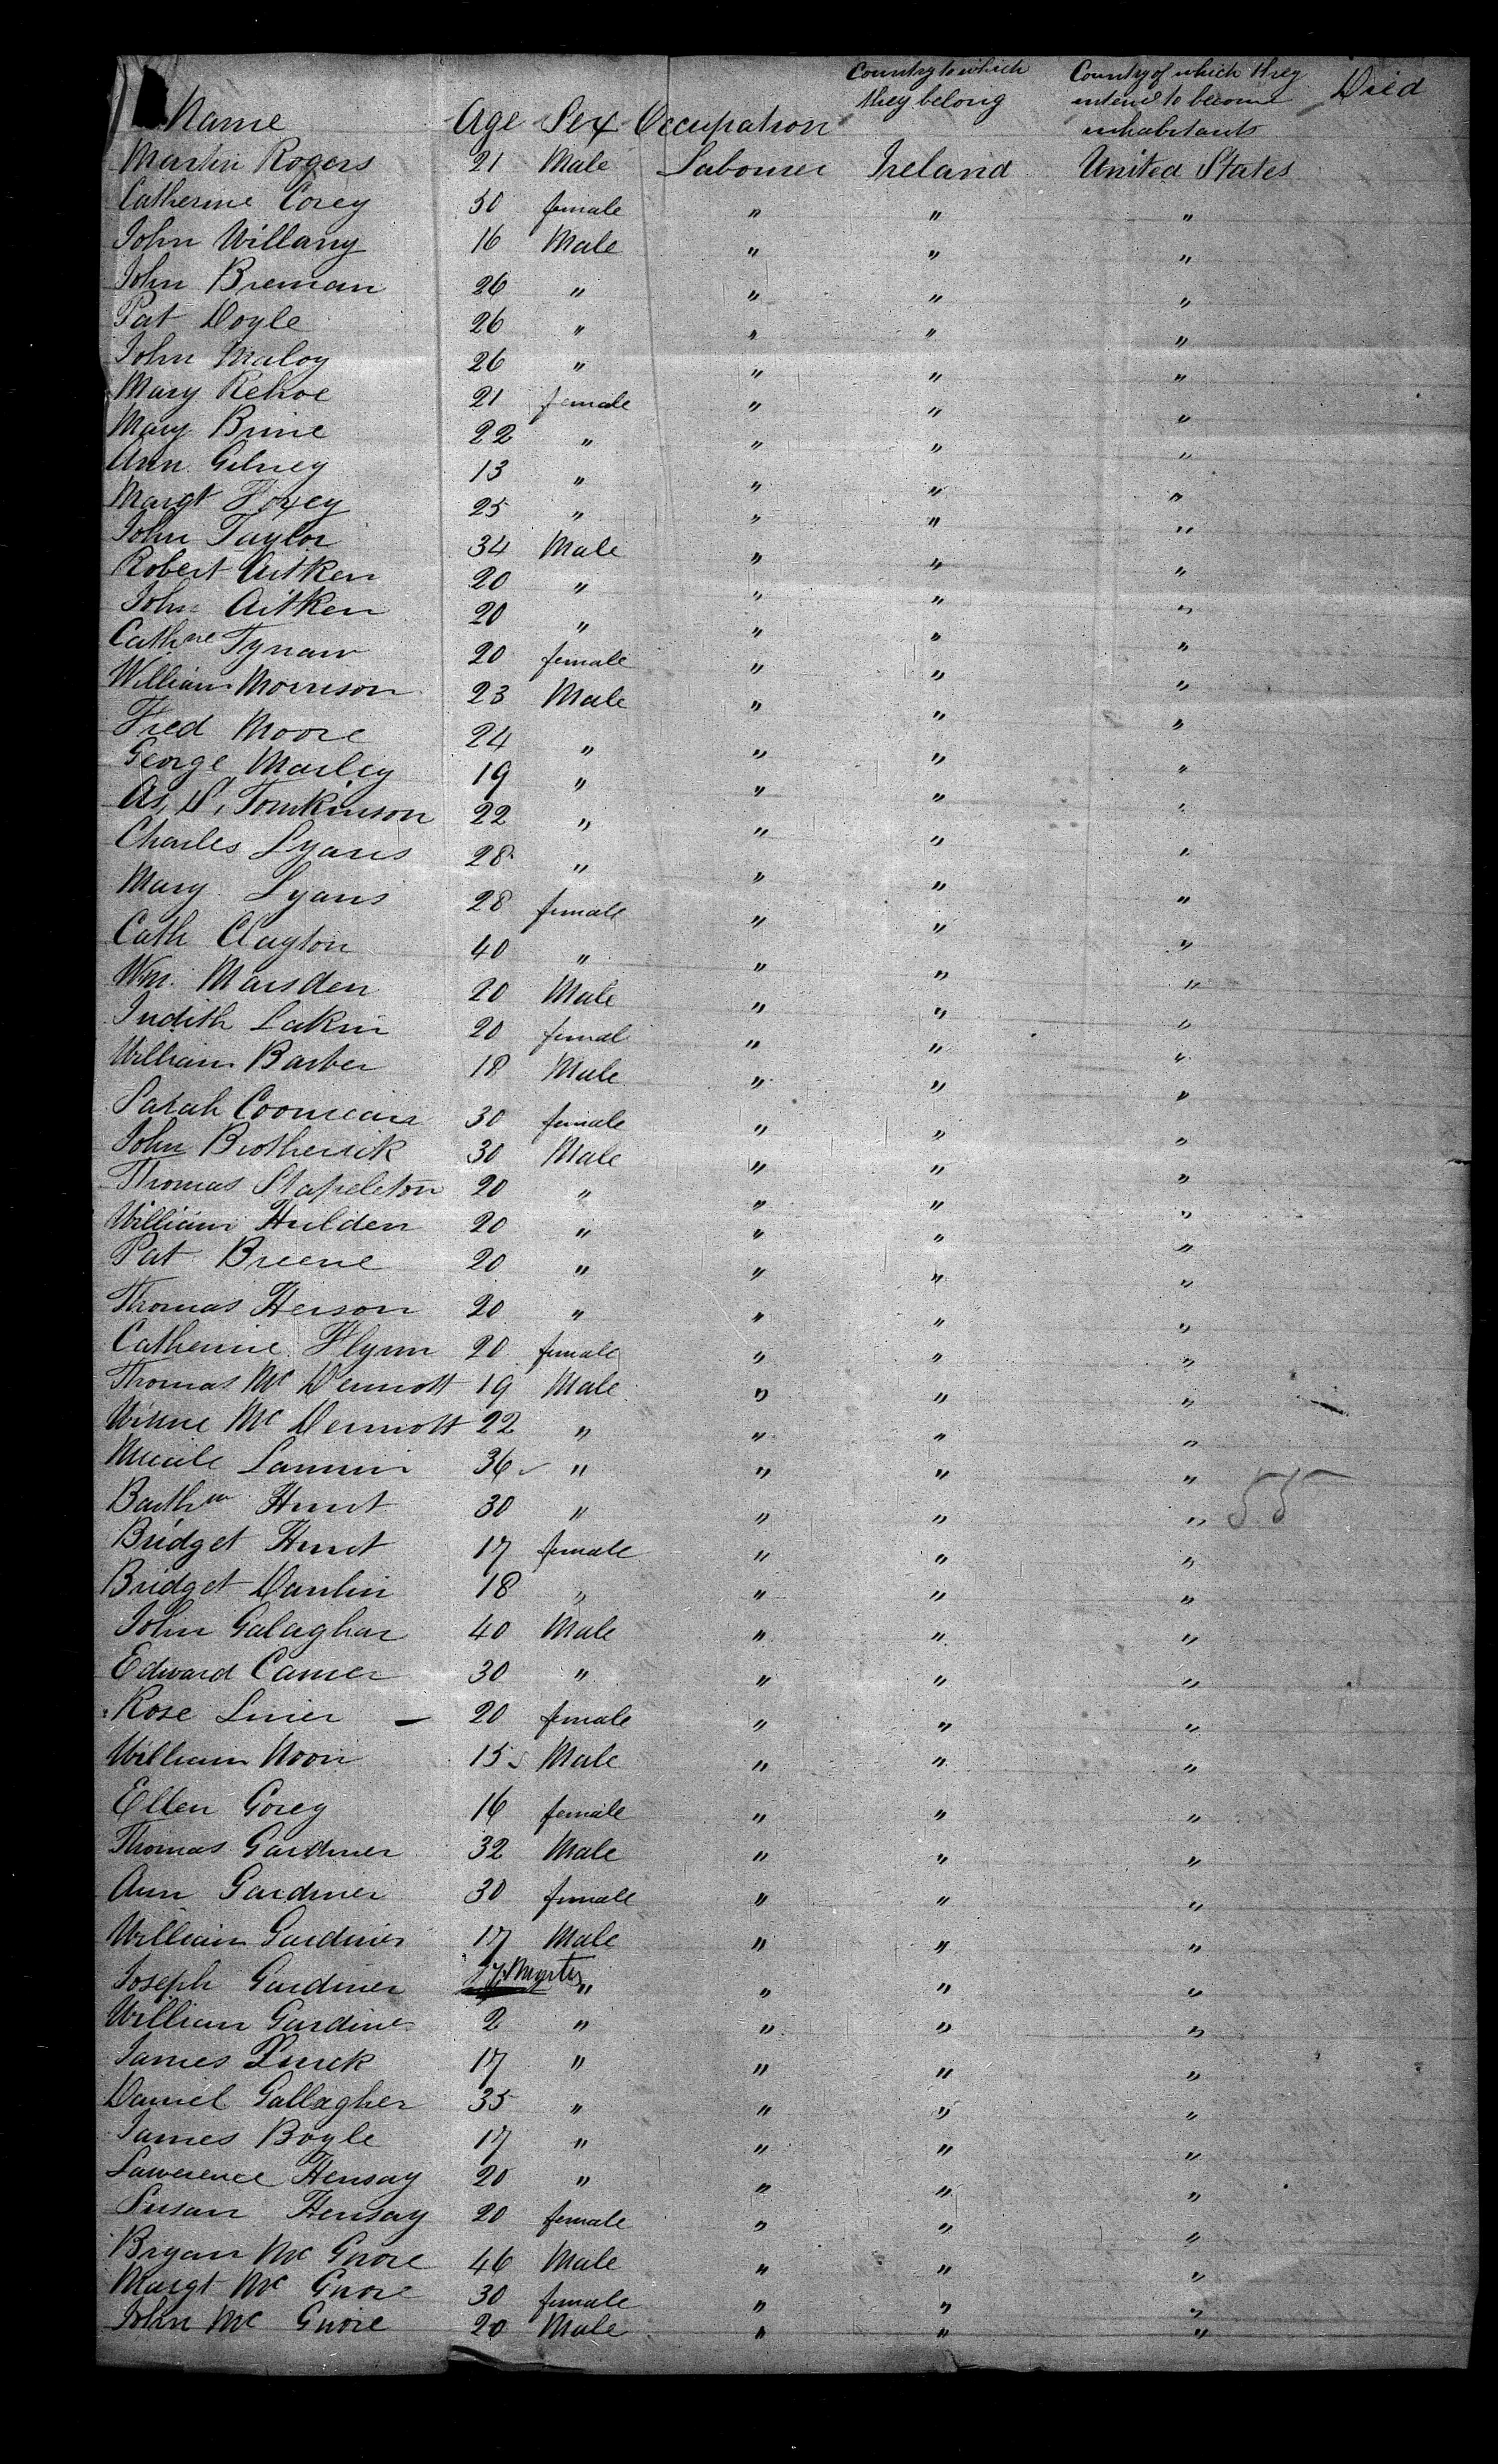 Name Age Sex Occupation Country to which they belong Country of which they intend to become inhabitants Died
Martin Rogers 21 Male Labourer Ireland United States
Catherine Corey 50 female " " "
John Willany 16 Male " " "
John Brennan 26 " " " "
Pat Doyle 26 " " " "
John Maloy 26 " " " "
Mary Kehoe 21 female " " "
Mary Brine 22 " " " "
Ann Gilney 13 " " " "
Margt Foxey 25 " " " "
John Taylor 34 Male " " "
Robert Aitken 20 " " " "
John Aitken 20 " " " "
Cathne Tynan 20 female " " "
William Morrison 23 Male " " "
Fred Moore 24 " " " "
George Marley 19 " " " "
As. S. Tomkinson 22 " " " "
Charles Lyans 28 " " " "
Mary Lyans 28 female " " "
Cath Clayton 40 " " " "
Wm. Marsden 20 Male " " "
Judith Lakin 20 femal " " "
William Barber 18 Male " " "
Sarah 30 female " " "
John Brotherick 30 Male " " "
Thomas Stapleton 20 " " " "
William Hulden 20 " " " "
Pat Breene 20 " " " "
Thomas Herson 20 " " " "
Catherine Flynn 20 female " " "
Thomas Mc Dermott 19 Male " " "
Winne Mc Dermott 22 " " " "
Lannin 36 " " " "
Barthw Hunt 30 " " " " 55
Bridget Hunt 17 female " " "
Bridget Danlin 18 " " " "
John Galaghar 40 Male " " "
Edward Carner 30 " " " "
Rose Linier 20 female " " "
William Noon 15 Male " " "
Ellen Gorey 16 female " " "
Thomas Gardiner 32 Male " " "
Ann Gardiner 30 female " " "
William Gardiner 17 Male " " "
Joseph Gardiner " " " "
William Gardiner 2 " " " "
James Lurck 17 " " " "
Daniel Gallagher 35 " " " "
James Boyle 17 " " " "
Lawerence Hensay 20 " " " "
Susan Hensay 20 female " " "
Bryan Mc Gnore 46 Male " " "
Margt Mc Gnore 30 female " " "
John Mc Gnore 20 Male " " "